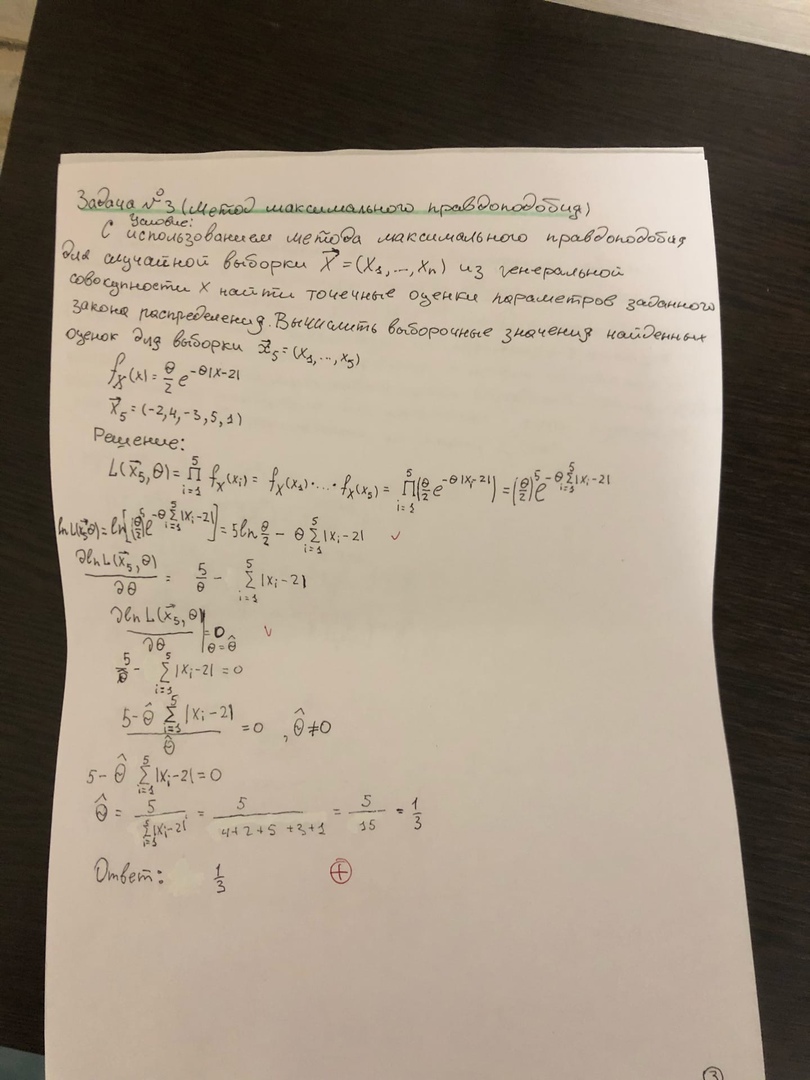 Задача №3 (Метод максимального правдоподобия)
Условие:
С использованием метода максимального правдоподобия
для случайной выборки X⃗ = (X₁, ..., Xₙ) из генеральной
совокупности X найти точечные оценки параметров заданного
закона распределения. Вычислить выборочные значения найденных
оценок для выборки x⃗₅ = (x₁, ..., x₅)
f_X(x) = θ/2 e^(-θ|x-2|)
x⃗₅ = (-2, 4, -3, 5, 1)
Решение:
L(x⃗₅, θ) = ∏_{i=1}^{5} f_X(xᵢ) = f_X(x₁) · ... · f_X(x₅) = ∏_{i=1}^{5} (θ/2 e^(-θ|xᵢ-2|)) = (θ/2)⁵ e^(-θ ∑_{i=1}^{5} |xᵢ-2|)
ln L(x⃗₅, θ) = ln[(θ/2)⁵ e^(-θ ∑_{i=1}^{5} |xᵢ-2|)] = 5 ln θ/2 - θ ∑_{i=1}^{5} |xᵢ-2| ✓
∂ln L(x⃗₅, θ)/∂θ = 5/θ - ∑_{i=1}^{5} |xᵢ-2|
∂ln L(x⃗₅, θ)/∂θ |_{θ=θ̂} = 0 ✓
5/θ̂ - ∑_{i=1}^{5} |xᵢ-2| = 0
(5 - θ̂ ∑_{i=1}^{5} |xᵢ-2|)/θ̂ = 0 , θ̂ ≠ 0
5 - θ̂ ∑_{i=1}^{5} |xᵢ-2| = 0
θ̂ = 5/(∑_{i=1}^{5} |xᵢ-2|) = 5/(4+2+5+3+1) = 5/15 = 1/3
Ответ: 1/3 ⊕
③